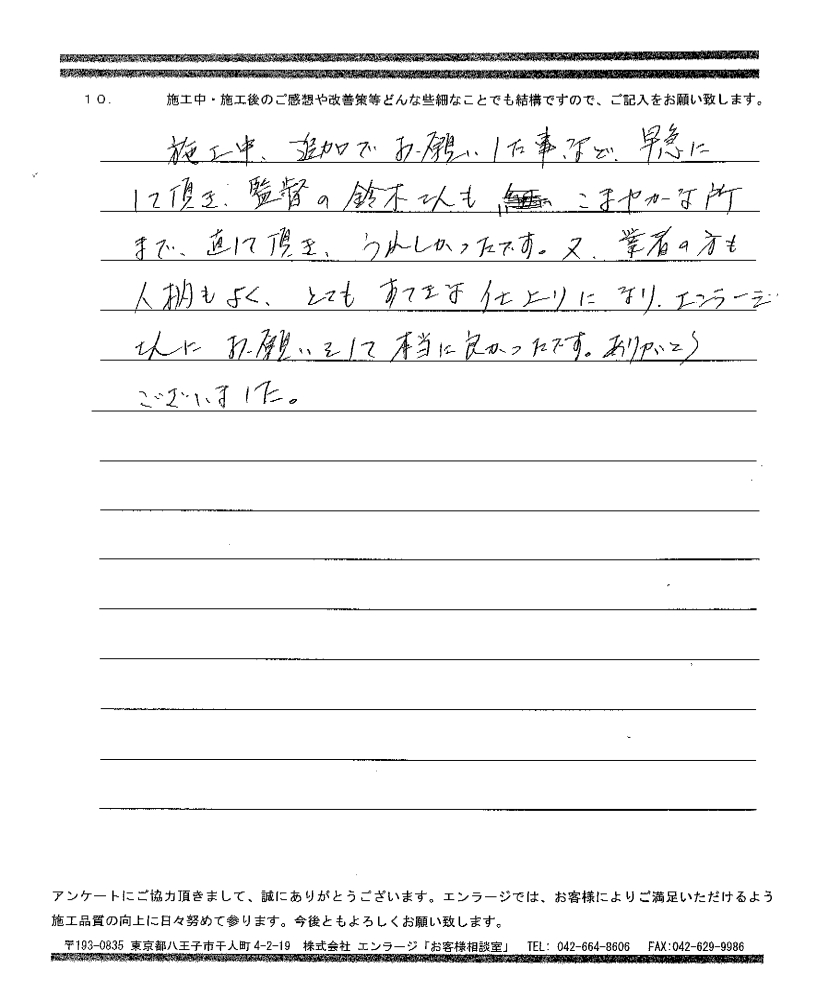 10. 施工中・施工後のご感想や改善策等どんな些細なことでも結構ですので、ご記入をお願い致します。
施工中、追加でお願いした事など、早急に
して頂き、監督の鈴木さんも こまやかな所
まで、直して頂き、うれしかったです。又、業者の方も
人柄もよく、とてもすてきな仕上りになり、エンラージ
さんにお願いをして本当に良かったです。ありがとう
ございました。
アンケートにご協力頂きまして、誠にありがとうございます。エンラージでは、お客様によりご満足いただけるよう
施工品質の向上に日々努めて参ります。今後ともよろしくお願い致します。
〒193-0835 東京都八王子市千人町4-2-19 株式会社 エンラージ「お客様相談室」 TEL: 042-664-8606 FAX:042-629-9986